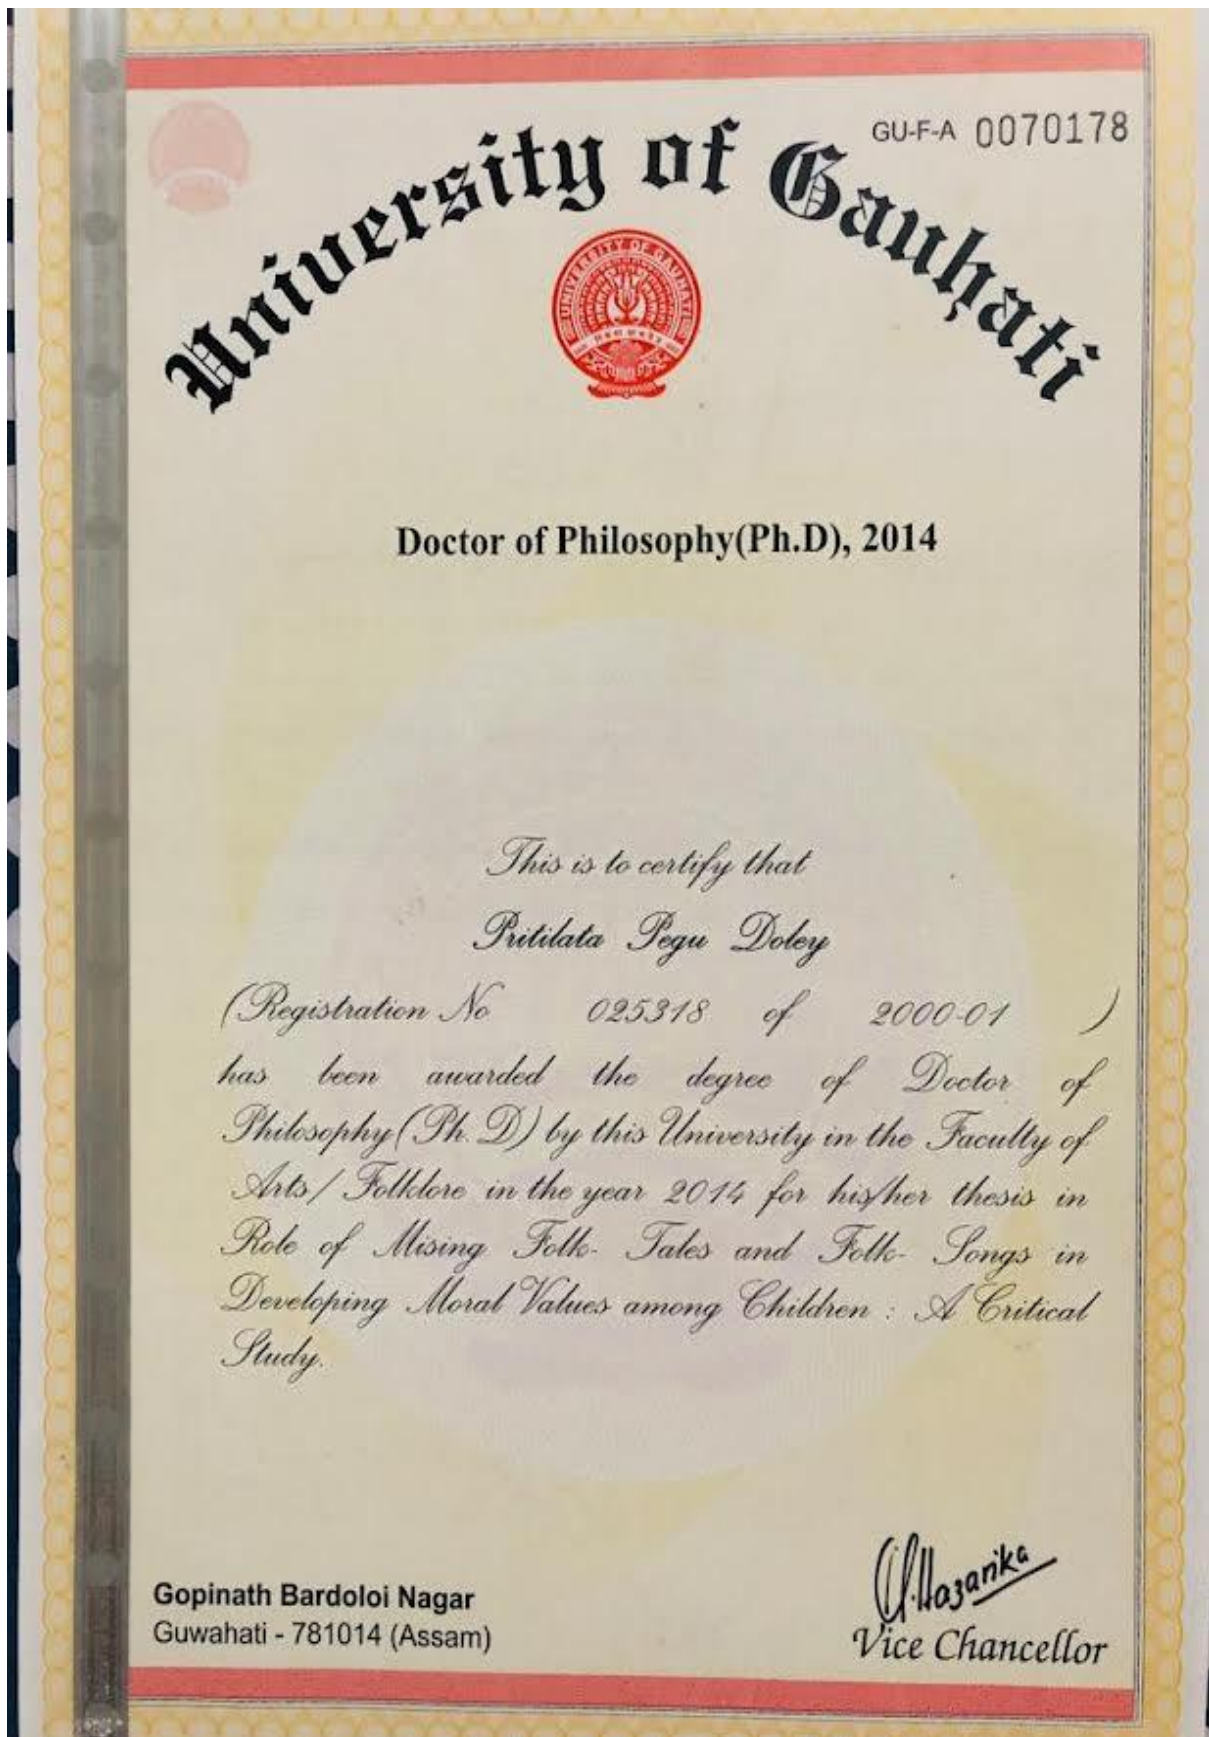 GU-F-A 0070178
University of Gauhati
UNIVERSITY OF GAUHATI
Doctor of Philosophy(Ph.D), 2014
This is to certify that
Pritilata Pegu Doley
(Registration No 025318 of 2000-01 )
has been awarded the degree of Doctor of
Philosophy(Ph. D) by this University in the Faculty of
Arts/ Folklore in the year 2014 for his/her thesis in
Role of Mising Folk- Tales and Folk- Songs in
Developing Moral Values among Children : A Critical
Study.
Hazarika
Gopinath Bardoloi Nagar
Guwahati - 781014 (Assam)
Vice Chancellor